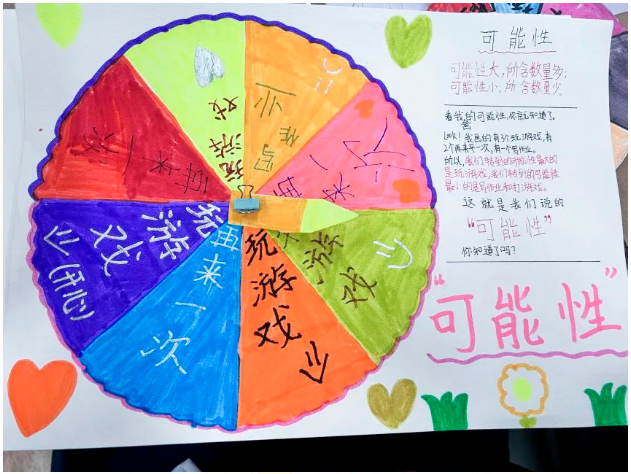 可能性
可能性大，所含数量多；
可能性小，所含数量少。
看我的可能性，你就知道了。
Look！我画的有3个玩游戏，有
2个再来一次，有一个写作业。
所以，我们转到的可能性最大的
是玩游戏，我们转到的可能性
最小的是写作业和打游戏。
这就是我们说的
“可能性”
你知道了吗？
“可能性”
玩游戏
写作业
再来一次
游戏
玩游戏
再来一次
玩游戏
（开心）
来一次